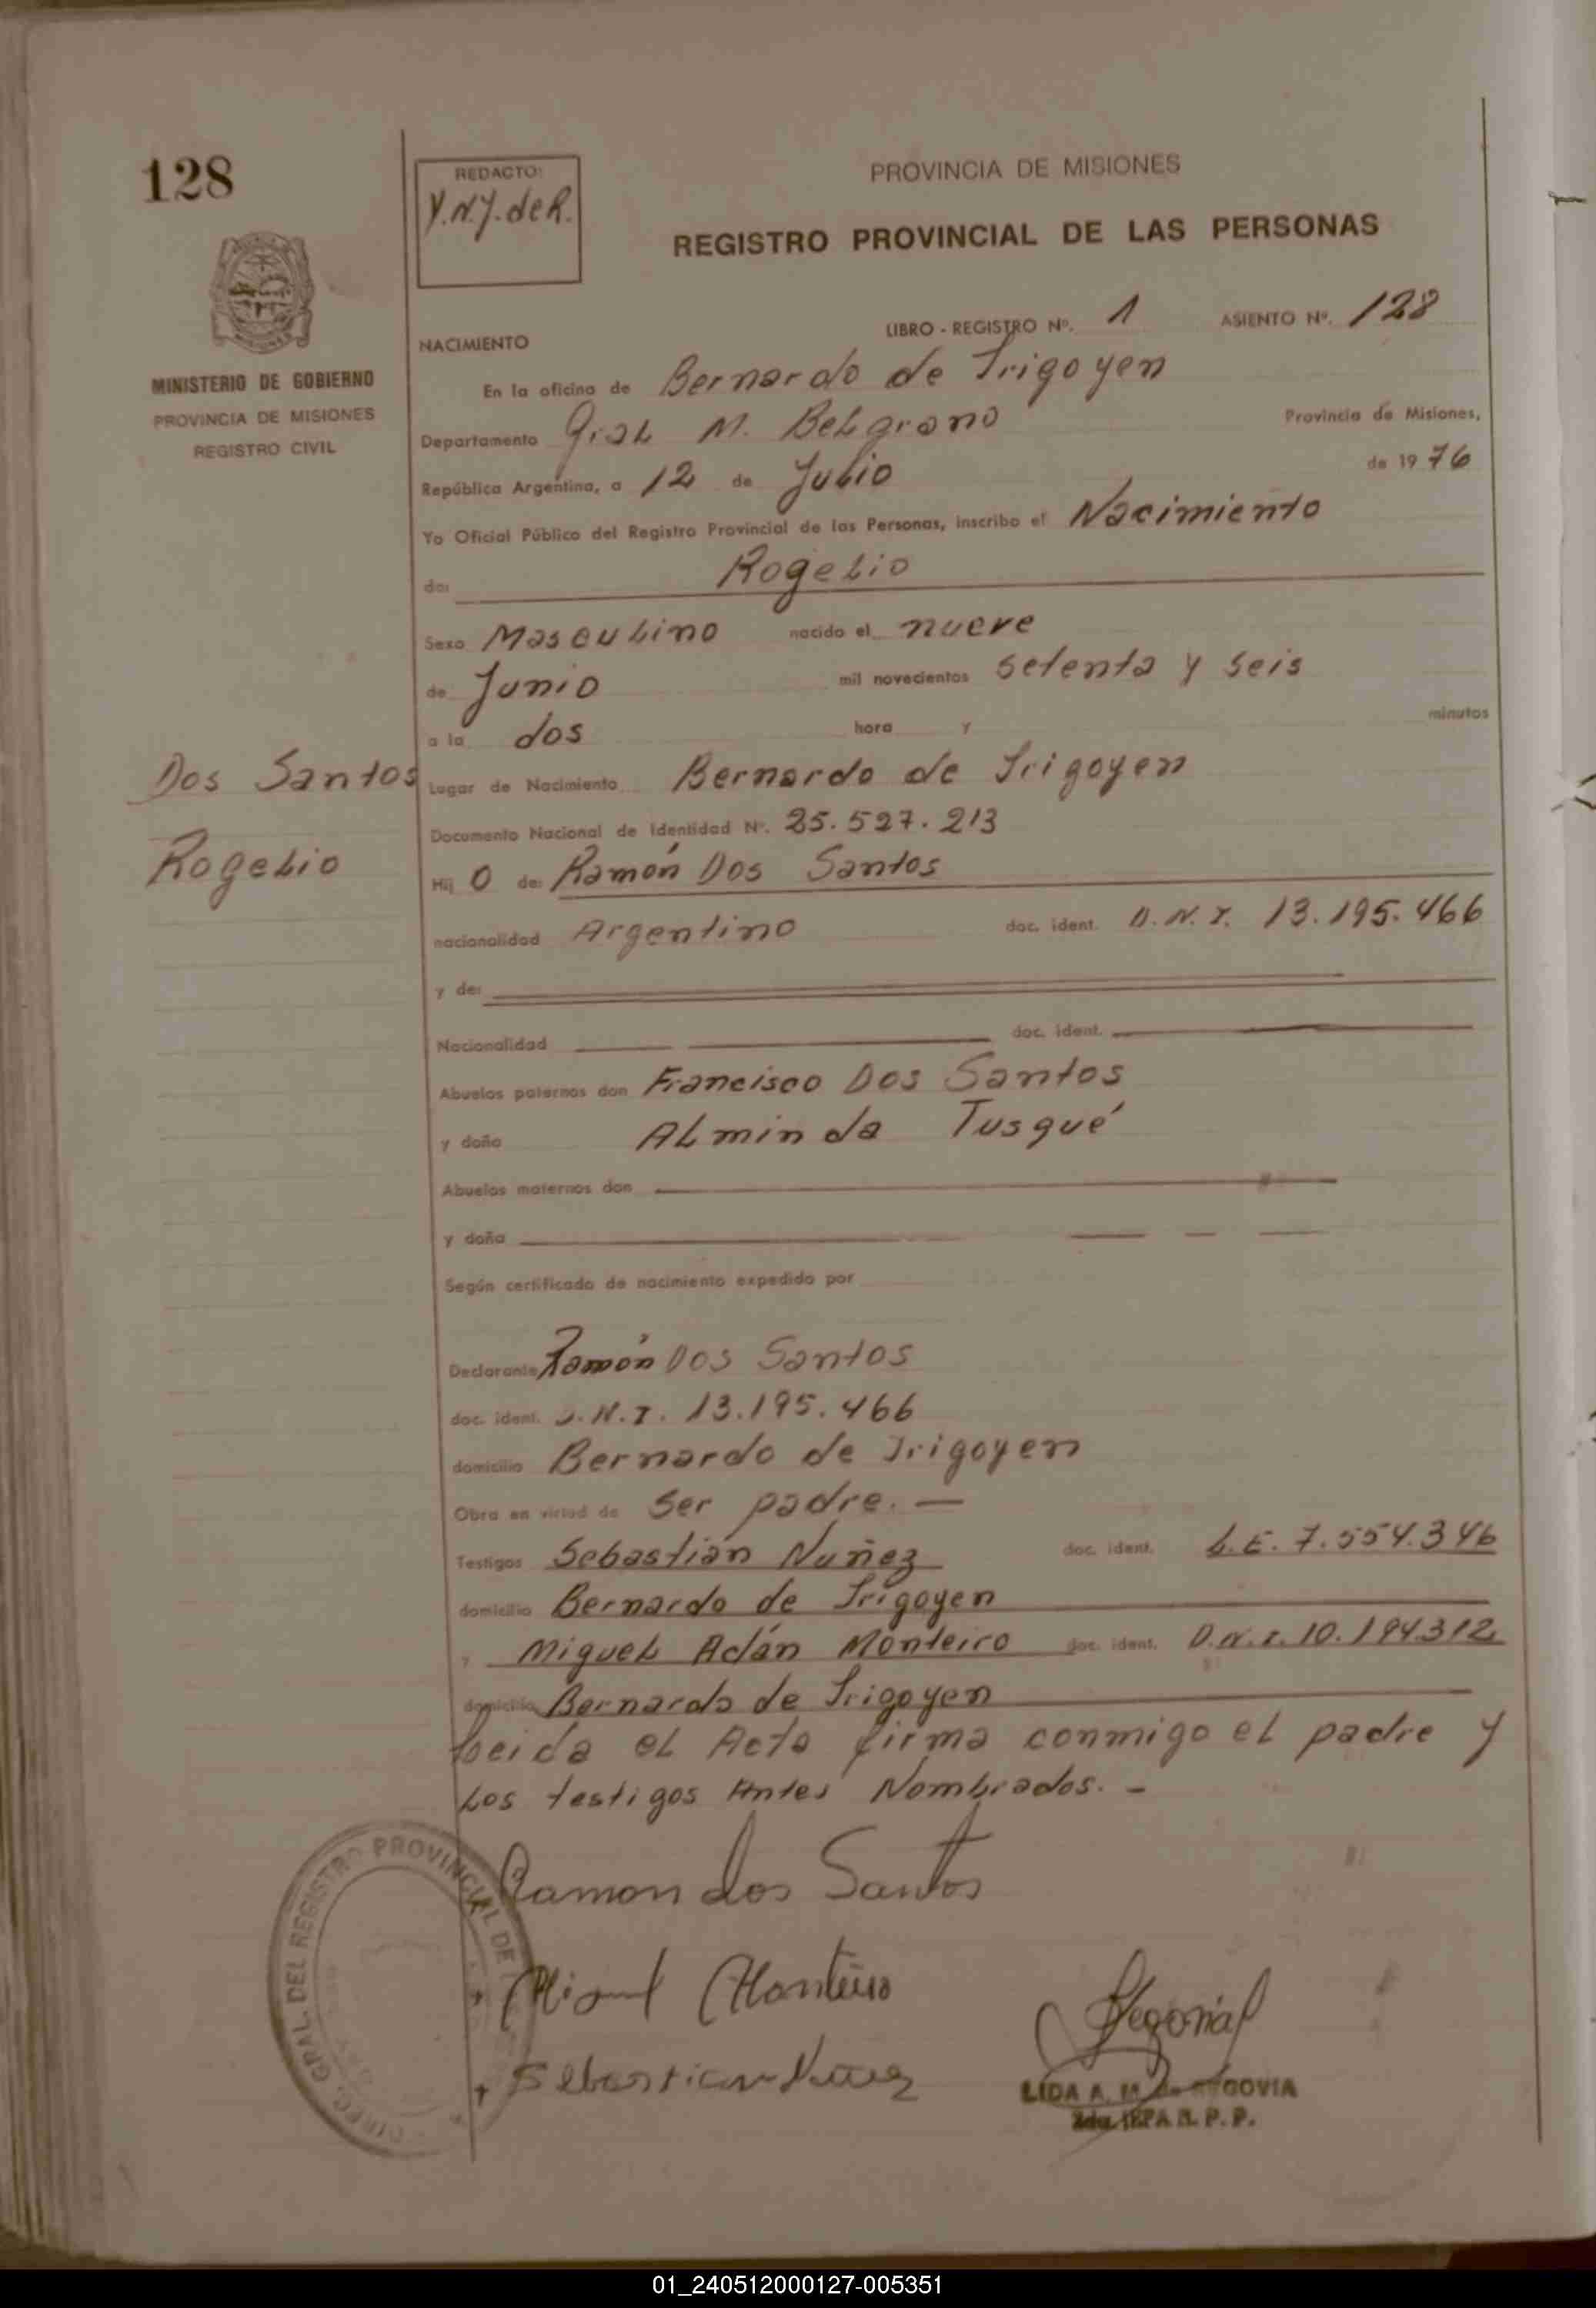 128
REDACTO:
Y.N.J. de R.
PROVINCIA DE MISIONES
REGISTRO PROVINCIAL DE LAS PERSONAS
MINISTERIO DE GOBIERNO
PROVINCIA DE MISIONES
REGISTRO CIVIL
LIBRO - REGISTRO Nº. 1 ASIENTO Nº. 128
NACIMIENTO
En la oficina de Bernardo de Irigoyen
Departamento Gral M. Belgrano Provincia de Misiones,
República Argentina, a 12 de Julio de 1976
Yo Oficial Público del Registro Provincial de las Personas, inscribo el Nacimiento
de: Rogelio
Sexo Masculino nacido el nueve
de Junio mil novecientos setenta y seis
a la dos hora y minutos
Dos Santos
Rogelio
Lugar de Nacimiento Bernardo de Irigoyen
Documento Nacional de Identidad Nº. 25.527.213
Hij o de: Ramón Dos Santos
nacionalidad Argentino doc. ident. D.N.I. 13.195.466
y de:
Nacionalidad doc. ident.
Abuelos paternos don Francisco Dos Santos
y doña Alminda Tusqué
Abuelos maternos don
y doña
Según certificado de nacimiento expedido por
Declarante Ramón Dos Santos
doc. ident. D.N.I. 13.195.466
domicilio Bernardo de Irigoyen
Obra en virtud de ser padre. —
Testigos Sebastián Nuñez doc. ident. L.E. 7.554.346
domicilio Bernardo de Irigoyen
y Miguel Adán Monteiro doc. ident. D.N.I. 10.194.312
domicilio Bernardo de Irigoyen
Leida el Acta firma conmigo el padre y
los testigos Antes Nombrados. -
Ramon dos Santos
Miguel Monteiro
Sebastian Nuñez
DIREC. GRAL. DEL REGISTRO PROVINCIAL DE
LIDA A. M. de SEGOVIA
R. P. P.
01_240512000127-005351